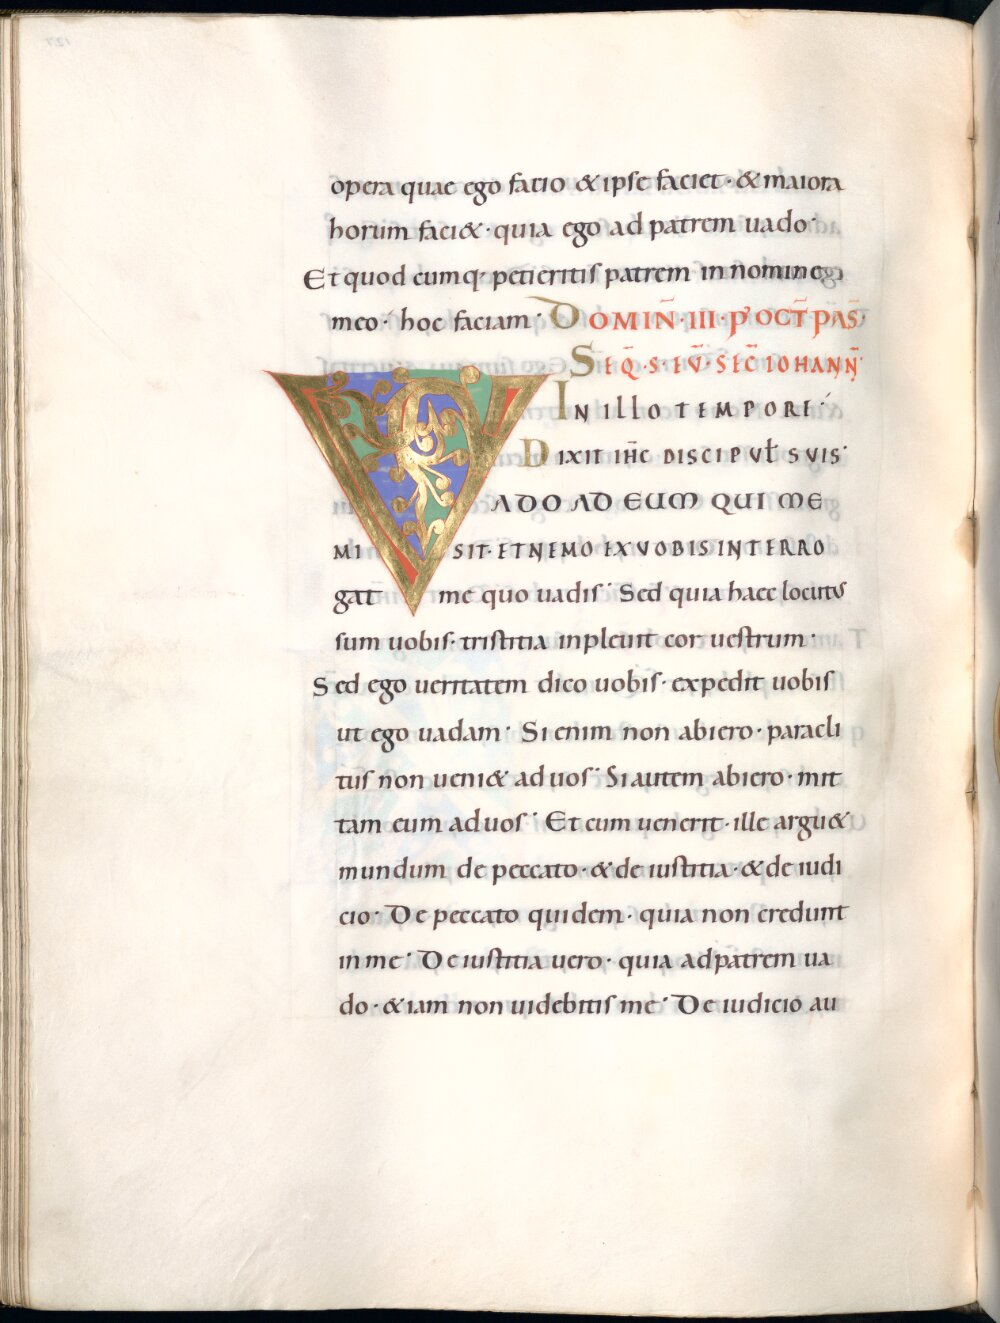 opera quae ego facio & ipse faciet · & maiora
horum faci& · quia ego ad patrem uado ·
Et quod cumq; petieritis patrem in nomine
meo · hoc faciam · DOMIN̄ · III · P' OCT̄ PAS̄ ·
SEQ̄ · S · EV̄ · SEC̄ IOHANN̄
IN ILLO TEMPORE ·
DIXIT IH̄C DISCIPVŁ SVIS ·
VADO AD EUM QUI ME
MISIT · ET NEMO EX VOBIS INTERRO
gat me quo uadis · Sed quia haec locutus
sum uobis · tristitia inpleuit cor uestrum ·
Sed ego ueritatem dico uobis · expedit uobis
ut ego uadam · Si enim non abiero · paracli
tus non ueni& ad uos · Si autem abiero · mit
tam eum ad uos · Et cum uenerit · ille argu&
mundum de peccato · & de iustitia · & de iudi
cio · De peccato quidem · quia non credunt
in me · De iustitia uero · quia ad patrem ua
do · & iam non uidebitis me · De iudicio au